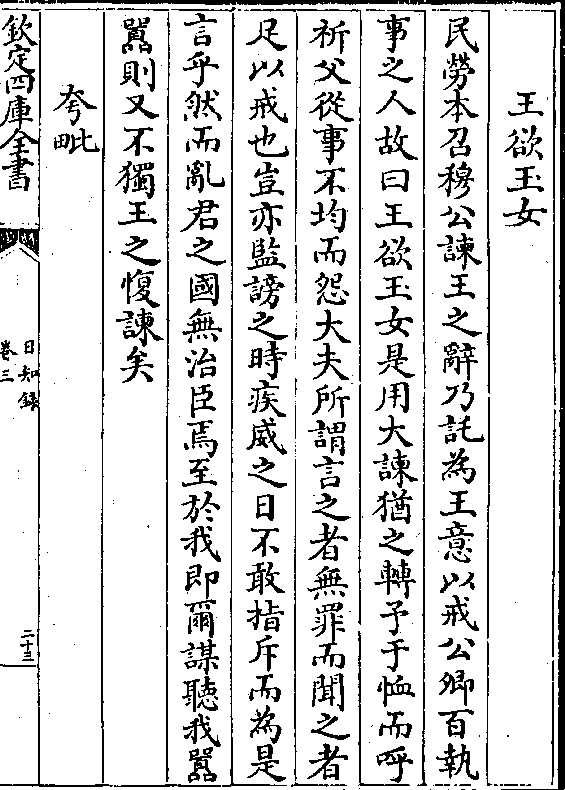 王欲玉女
民勞本召穆公諫王之辭乃託為王意以戒公卿百執
事之人故曰王欲玉女是用大諫猶之轉予于恤而呼
祈父從事不均而怨大夫所謂言之者無罪而聞之者
足以戒也豈亦監謗之時疾威之日不敢指斥而為是
言乎然而亂君之國無治臣焉至於我即爾謀聽我囂
囂則又不獨王之愎諫矣
夸毗
欽定四庫全書
日知錄
卷三
二十三